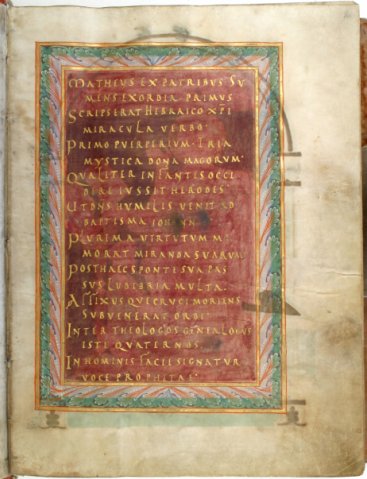 MATHEUS EX PATRIBUS SU
MENS EXORDIA PRIMUS
SCRIPSERAT HEBRAICO XPI
MIRACULA VERBO
PRIMO PUERPERIUM · TRIA
MYSTICA DONA MAGORUM ·
QUALITER INFANTIS OCCI
DI EIUS SIT HERODES
UT DNS HUMILIS VENIT AD
BAPTISMA IOHANN
PLURIMA VIRTUTUM ME
MORAT MIRANDA SUARUM
POST HAEC SPONTE SUA PAS
SUS LUDIBRIA MULTA ·
AFFIXUS QUE CRUCI MORIENS
SUBVENERAT ORBI
INTER THEOLOGOS GENEALOGUS
ISTE QUATERNOS
IN HOMINIS FACIE SIGNATUR
VOCE PROPHETAE ·